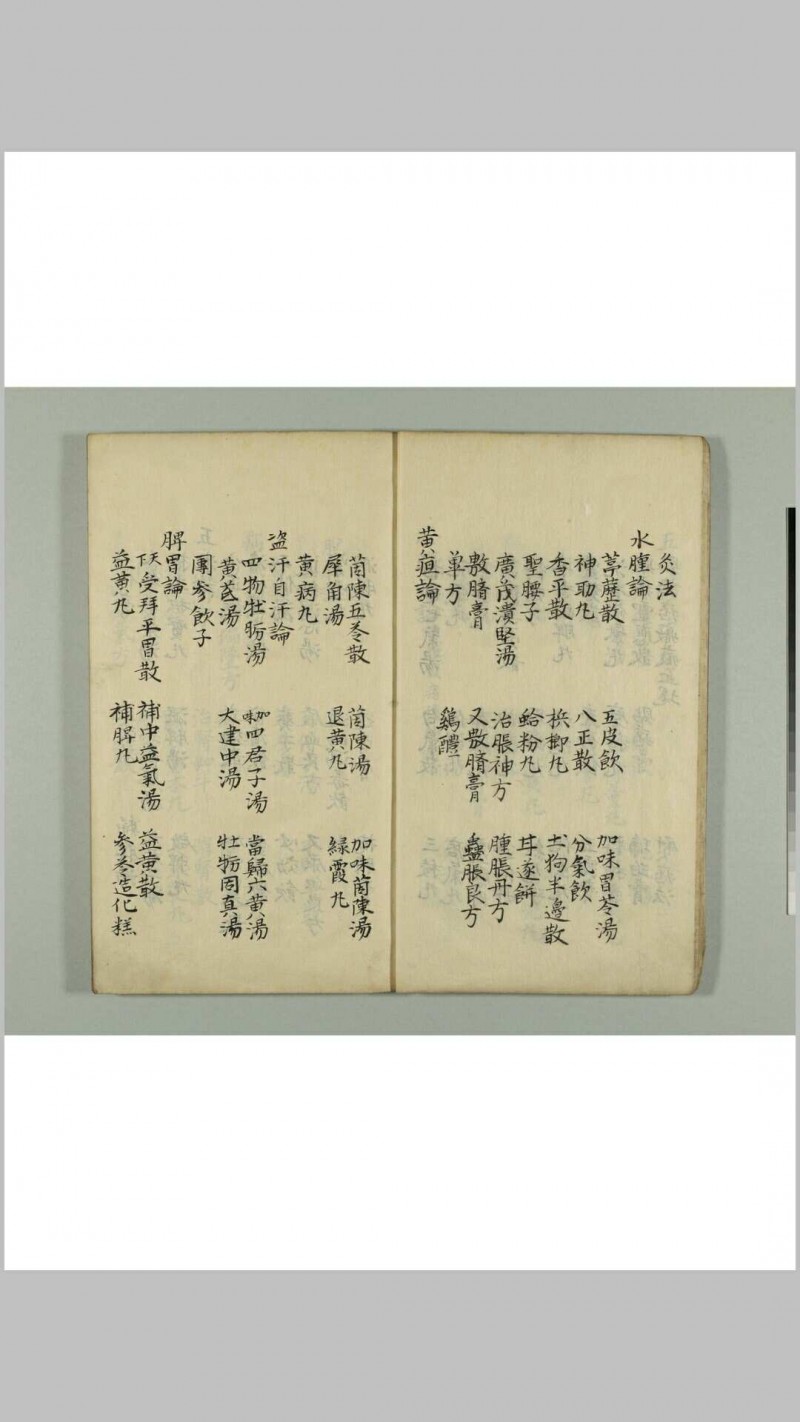 灸法
水腫論
葶藶散 五皮飲 加味胃苓湯
神助丸 八正散 分氣飲
香平散 檳榔丸 土狗半邊散
聖腰子 蛤粉丸 甘遂餅
廣茂潰堅湯 治脹神方 腫脹丹方
敷臍膏 又敷臍膏 蠱脹良方
单方 鷄醴
黄疸論
茵陳五苓散 茵陳湯 加味茵陳湯
犀角湯 退黄丸 緑霞丸
黄病丸
盗汗自汗論
四物牡蛎湯 加味四君子湯 當歸六黄湯
黄芪湯 大建中湯 牡蛎固真湯
團參飲子
脾胃論
天下受拜平胃散 補中益氣湯 益黄散
益黄丸 補脾丸 參苓造化糕